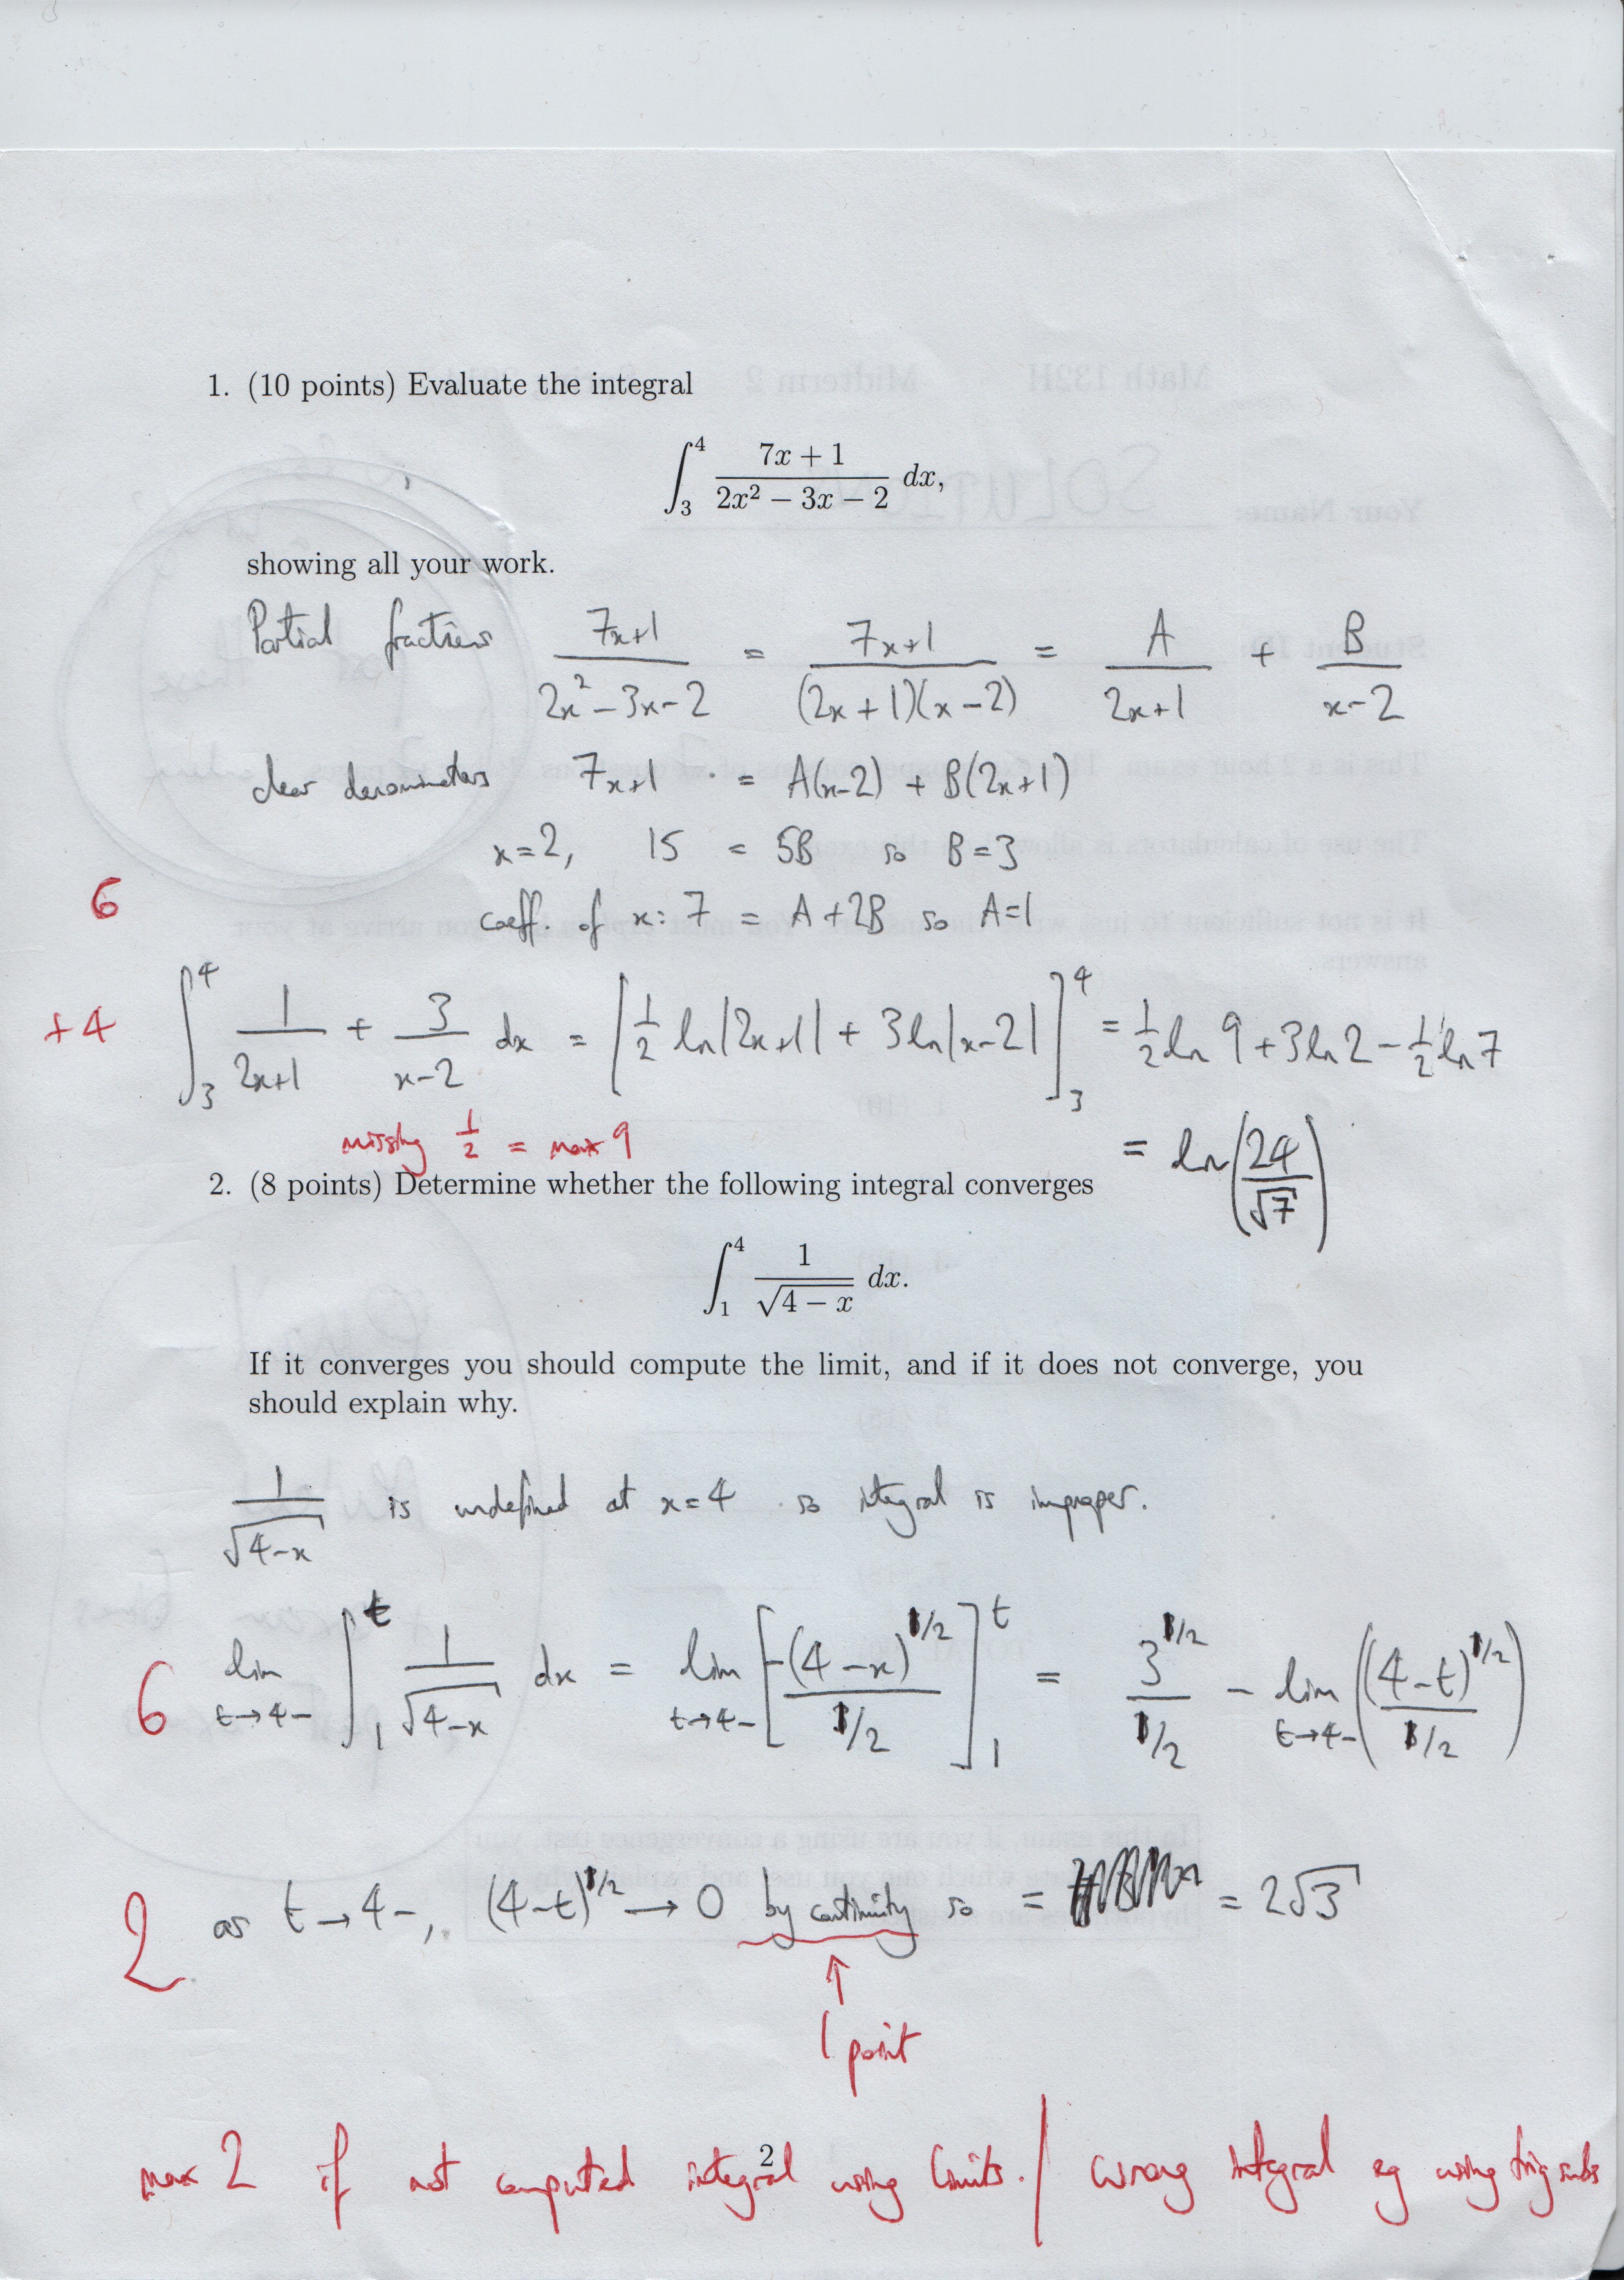 1. (10 points) Evaluate the integral
∫_3^4 (7x + 1)/(2x² − 3x − 2) dx,
showing all your work.
Partial fractions (7x+1)/(2x²−3x−2) = (7x+1)/((2x+1)(x−2)) = A/(2x+1) + B/(x−2)
clear denominators 7x+1 = A(x−2) + B(2x+1)
x=2, 15 = 5B so B=3
6 coeff. of x: 7 = A+2B so A=1
+4 ∫_3^4 1/(2x+1) + 3/(x−2) dx = [1/2 ln|2x+1| + 3ln|x−2|]_3^4 = 1/2 ln 9 + 3 ln 2 − 1/2 ln 7
missing 1/2 = max 9
= ln(24/√7)
2. (8 points) Determine whether the following integral converges
∫_1^4 1/√(4 − x) dx.
If it converges you should compute the limit, and if it does not converge, you
should explain why.
1/√(4−x) is undefined at x=4 so integral is improper.
6 lim_{t→4−} ∫_1^t 1/√(4−x) dx = lim_{t→4−} [−(4−x)^{1/2}/(1/2)]_1^t = 3^{1/2}/(1/2) − lim_{t→4−} ((4−t)^{1/2}/(1/2))
2 as t→4−, (4−t)^{1/2} → 0 by continuity so = = 2√3
↑
1 point
max 2 if not computed integral using limits. / wrong integral eg using trig subs
2